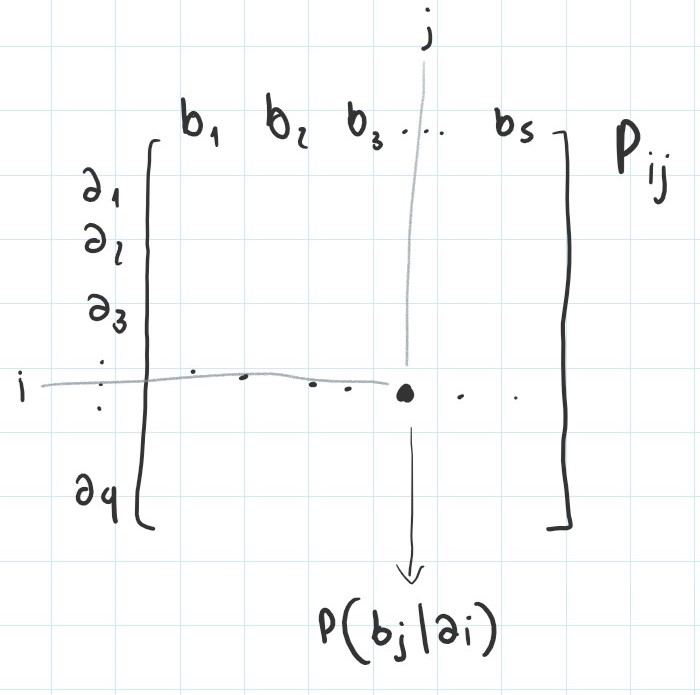 j
b₁ b₂ b₃ .... bₛ
P_ij
a₁
a₂
a₃
.
.
.
i
a_q
P(b_j|a_i)